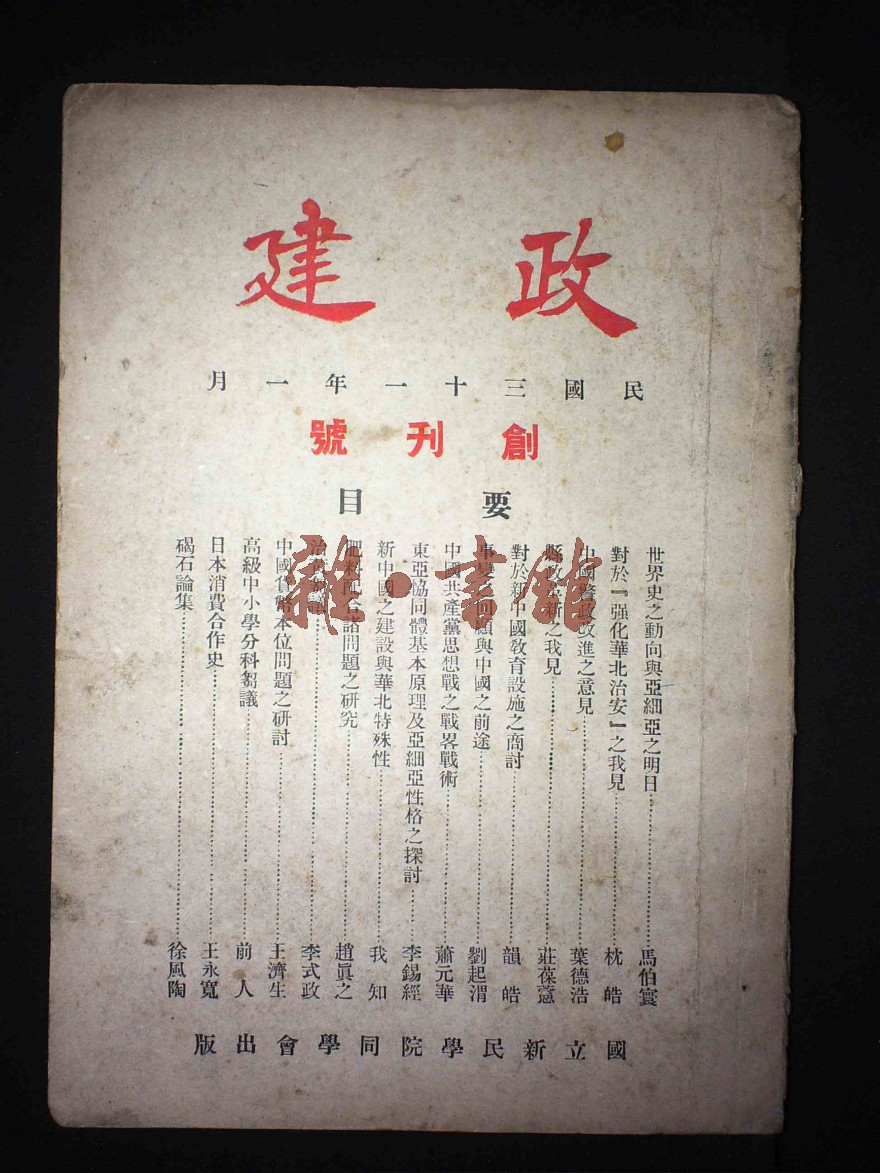 政建
民國三十一年一月
創刊號
要目
世界史之動向與亞細亞之明日……馬伯寰
對於『强化華北治安』之我見……枕皓
中國警政改進之意見……葉德浩
縣政革新之我見……莊葆
對於新中國教育設施之商討……韻皓
事變之回顧與中國之前途……劉起渭
中國共產黨思想戰之戰畧戰術……蕭元華
東亞協同體基本原理及亞細亞性格之探討……李錫經
新中國之建設與華北特殊性……我知
肥料配合諸問題之研究……趙眞之
治……李式政
中國貨幣本位問題之研討……王濟生
高級中小學分科芻議……前人
日本消費合作史……王永寬
碣石論集……徐風陶
國立新民學院同學會出版
雜·書館